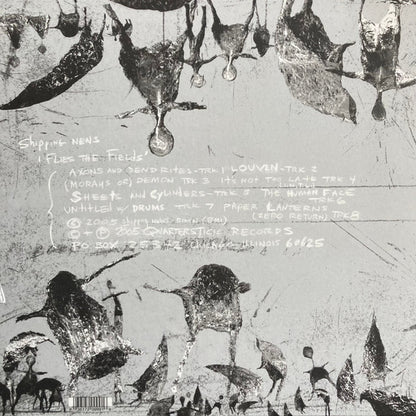 Shipping News
'Flies the Fields'
AXONS AND DENDRITES - TRK 1 LOUVEN - TRK 2
(MORAYS OR) DEMON TRK 3 IT'S NOT TOO LATE TRK 4
SHEETS AND CYLINDERS - TRK 5 THE HUMAN FACE
TRK 6
UNTITLED W/ DRUMS TRK 7 PAPER LANTERNS
(ZERO RETURN) TRK 8
© 2005 Shipping News (BMI)
© + ℗ 2005 QUARTERSTICK RECORDS
P.O. BOX 25342 CHICAGO, ILLINOIS 60625